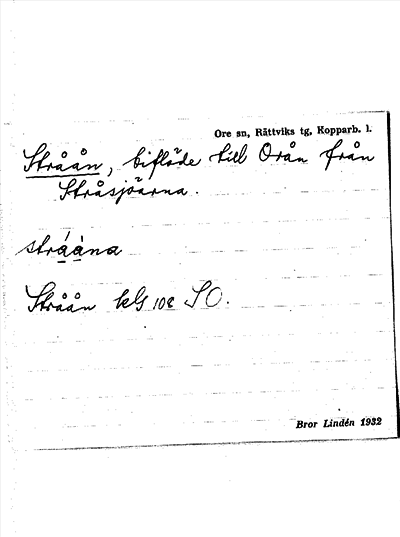 Ore sn, Rättviks tg, Kopparb. l.
Stråån, biflöde till Orån från
Stråsjöarna.
stråàna
Stråån kbl 108 SO.
Bror Lindén 1932